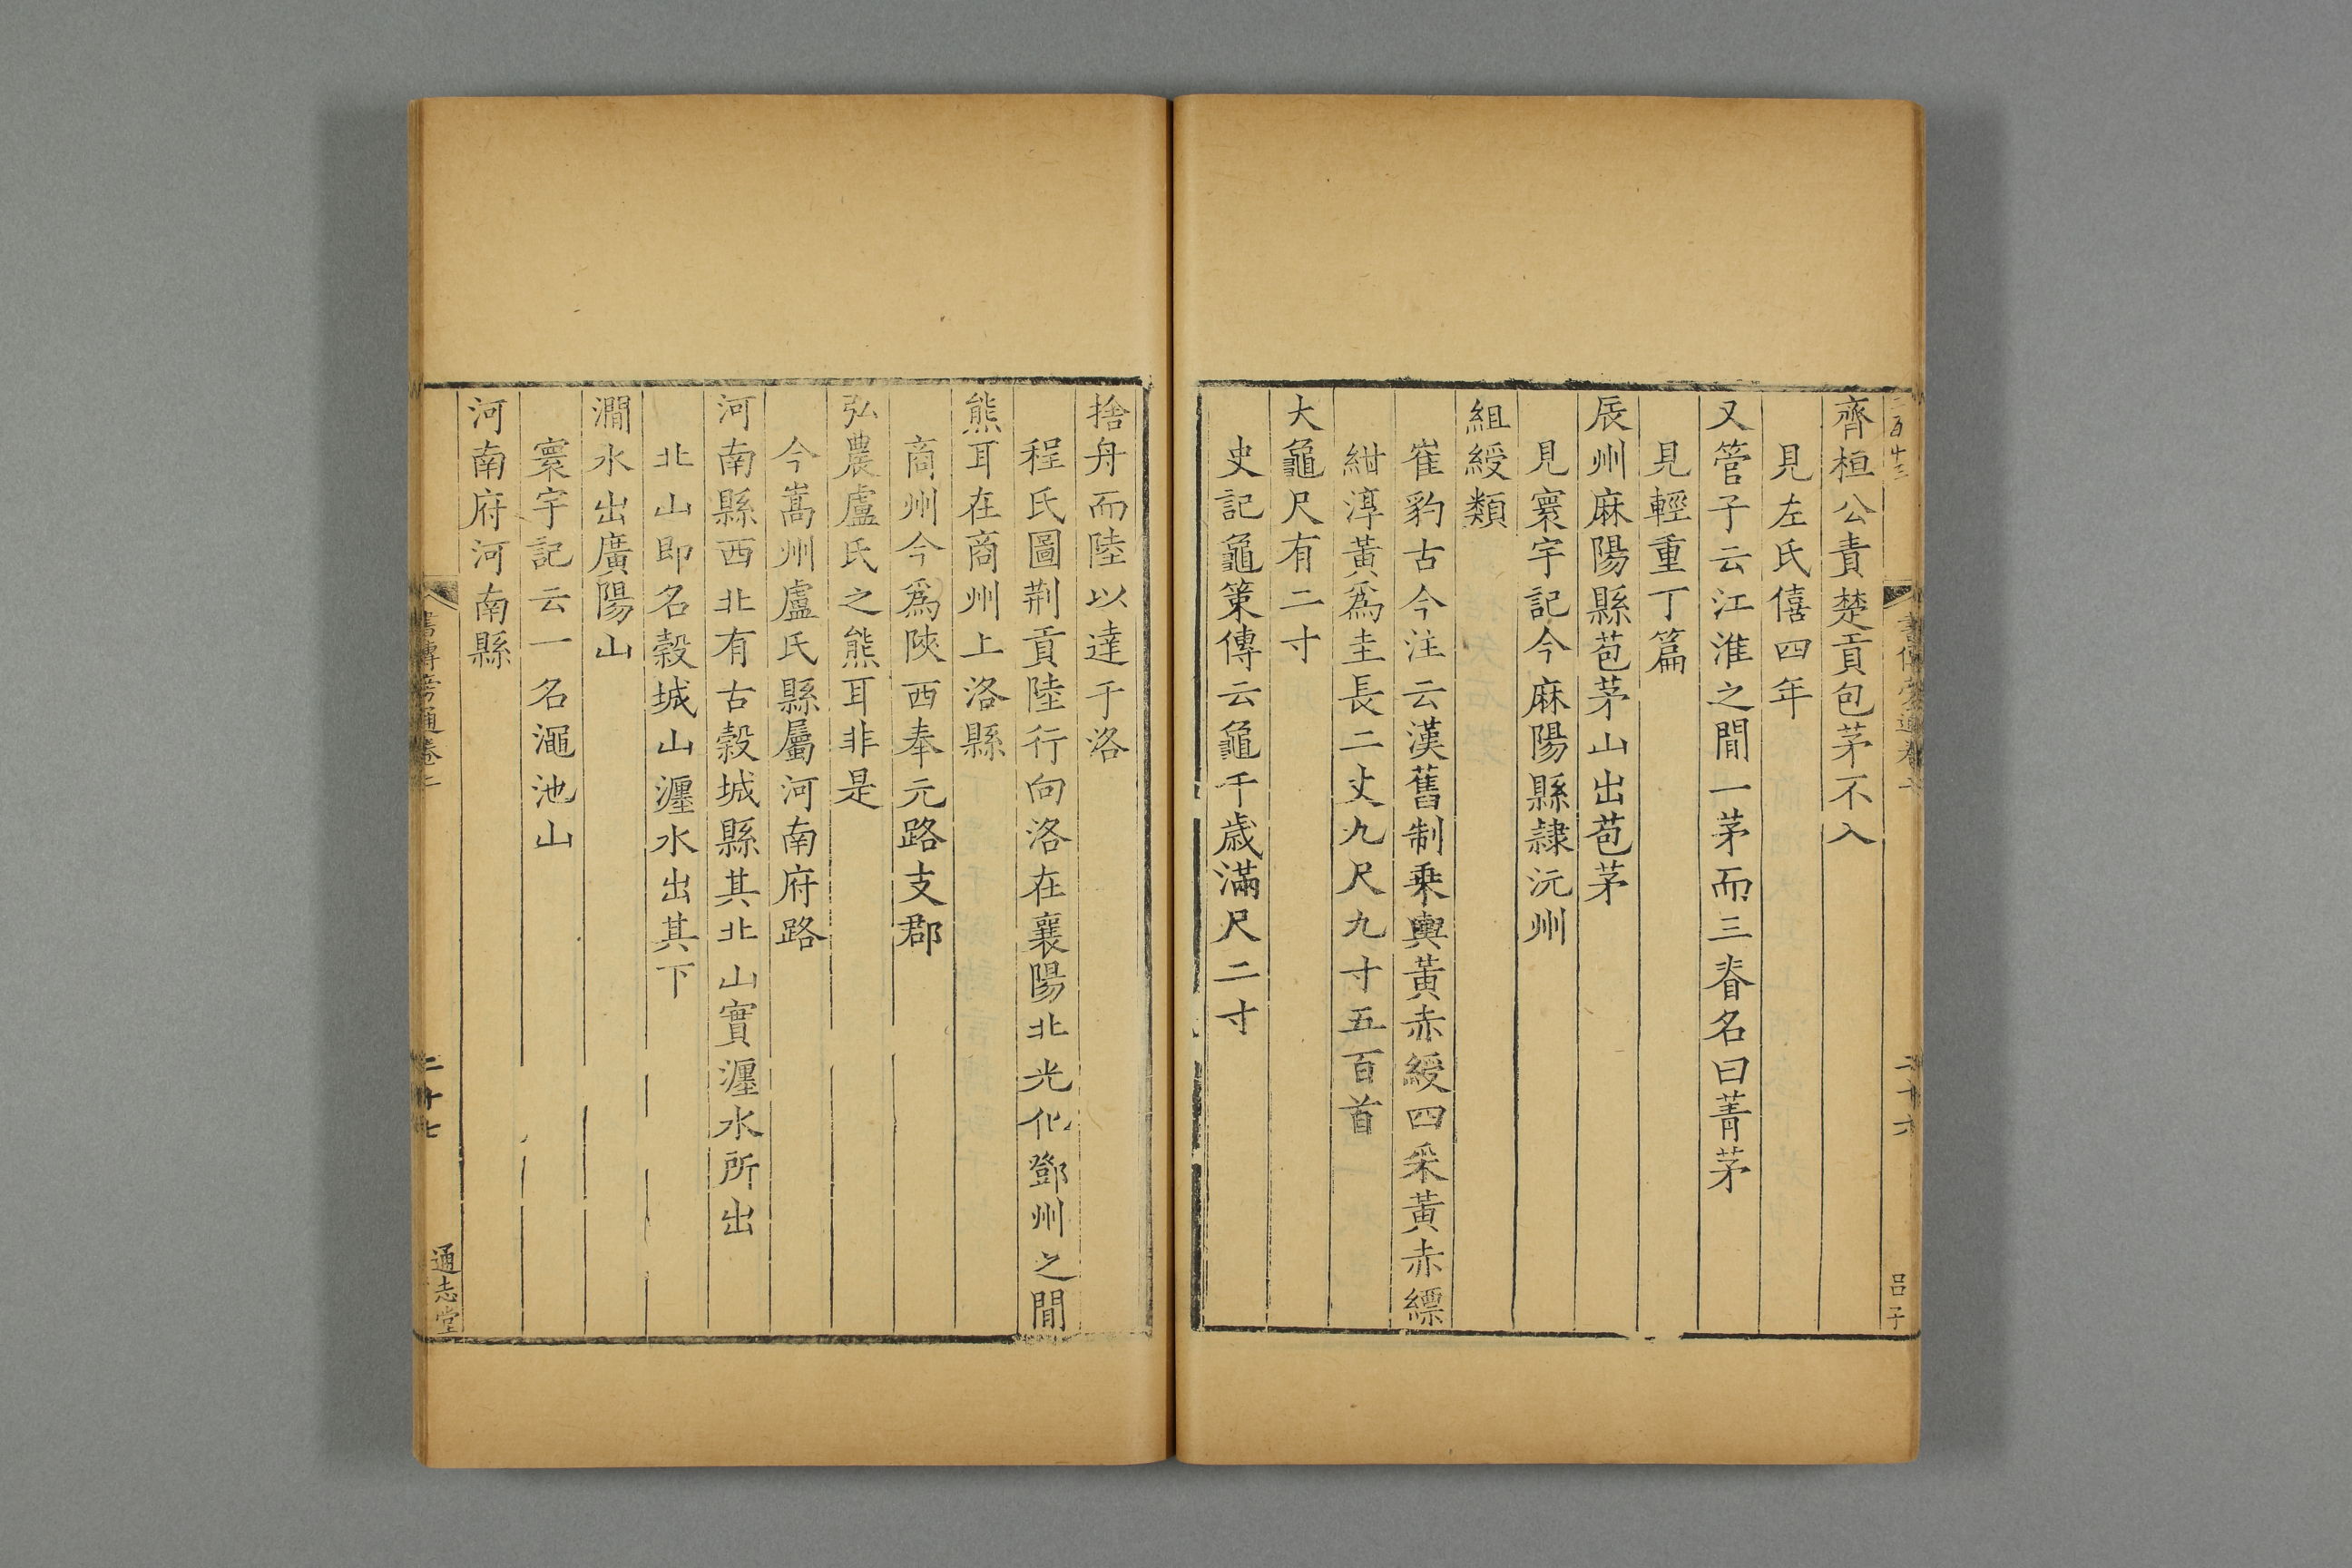 齊桓公責楚貢包茅不入
見左氏僖四年
又管子云江淮之閒一茅而三脊名曰菁茅
見輕重丁篇
辰州麻陽縣苞茅山出苞茅
見寰宇記今麻陽縣隷沅州
組綬類
崔豹古今注云漢舊制乗輿黃赤綬四采黃赤縹
紺淳黃爲圭長二丈九尺九寸五百首
大龜尺有二寸
史記龜策傳云龜千歳滿尺二寸
二十六
呂子
捨舟而陸以達于洛
程氏圖荆貢陸行向洛在襄陽北光化鄧州之閒
熊耳在商州上洛縣
商州今爲陜西奉元路支郡
弘農盧氏之熊耳非是
今嵩州盧氏縣屬河南府路
河南縣西北有古穀城縣其北山實瀍水所出
北山即名穀城山瀍水出其下
澗水出廣陽山
寰宇記云一名澠池山
河南府河南縣
書傳旁通卷二
二十七
通志堂